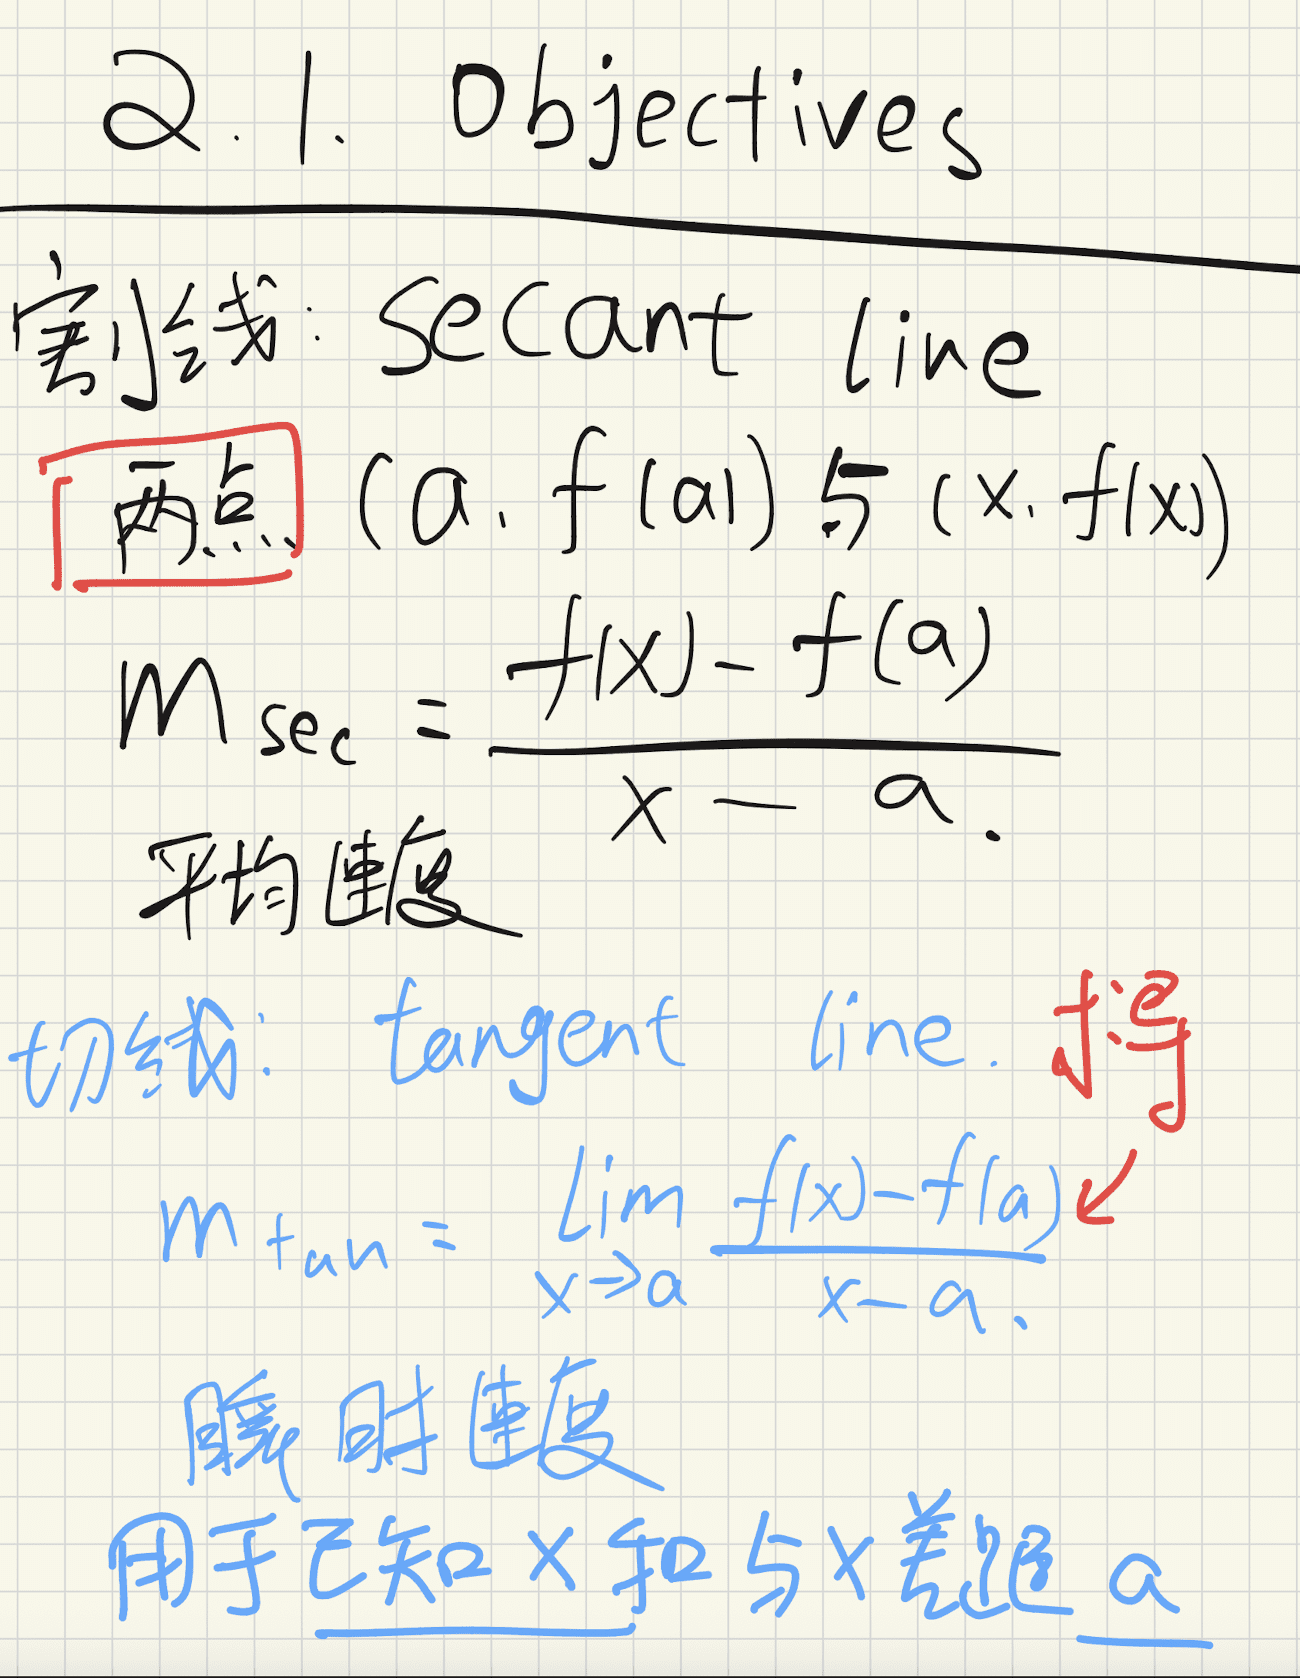 2.1. Objectives
割线: secant line
两点 (a, f(a)) 与 (x, f(x))
m sec = f(x) - f(a) / x - a.
平均速度
切线: tangent line.
m tan = lim x→a f(x) - f(a) / x - a.
瞬时速度
用于已知x和与x差距a